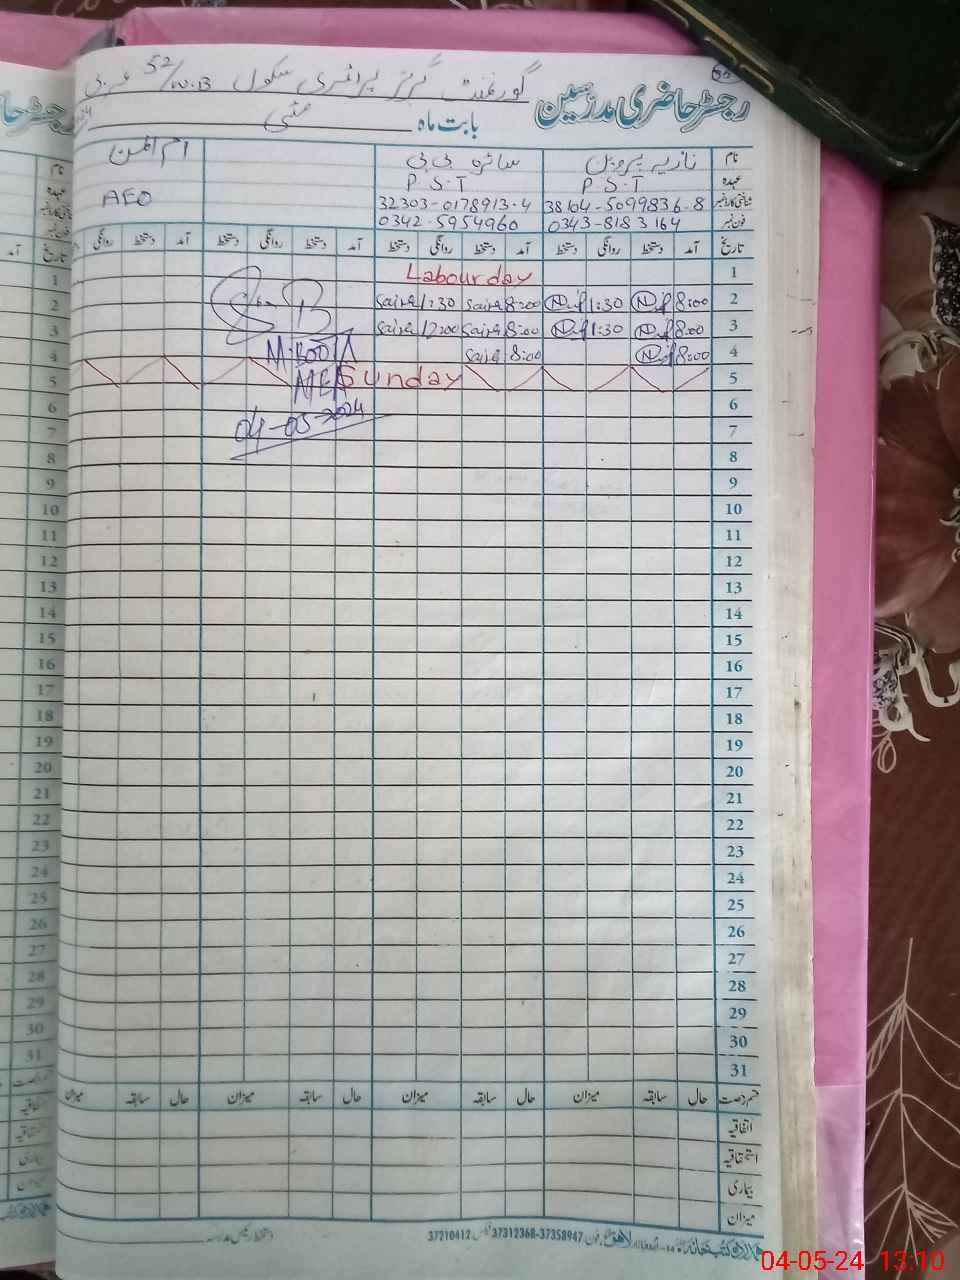 گورنمنٹ گرلز پرائمری سکول 52/W.B
رجسٹر حاضری مدرسین
بابت ماہ مئی
نام نازیہ پروین سائرہ بی بی
عہدہ P.S.T P.S.T AEO
شناختی کارڈ نمبر 38104-5099836-8 32303-0178913-4
فون نمبر 0343-8183164 0342-5954960
تاریخ آمد دستخط روانگی دستخط آمد دستخط روانگی دستخط آمد دستخط روانگی دستخط آمد دستخط روانگی
1 Labour day
2 8:00 1:30 8:00 Saira 1:30 Saira
3 8:00 1:30 8:00 Saira 12:00 Saira
4 8:00 8:00 Saira
5 Sunday
MEA
04-05-2024
6
7
8
9
10
11
12
13
14
15
16
17
18
19
20
21
22
23
24
25
26
27
28
29
30
31
حال سابقہ میزان حال سابقہ میزان حال سابقہ میزان حال سابقہ میزان
اتفاقیہ
استحقاقیہ
بیماری
میزان
دستخط رئیس مدرسہ
لاہور فون 37358947-37312368 فیکس 37210412
04-05-24 13:10